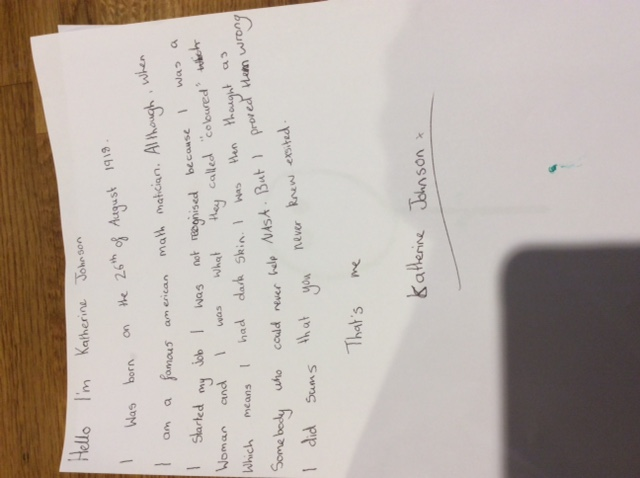 Hello I'm Katherine Johnson
I was born on the 26th of August 1918.
I am a famous american math matician. Although, when
I started my job I was not regnised because I was a
Woman and I was what they called "coloured"
Which means I had dark skin. I was then thought as
Somebody who could never help NASA. But I proved them wrong
I did sums that you never knew exsited.
That's me
Katherine Johnson x